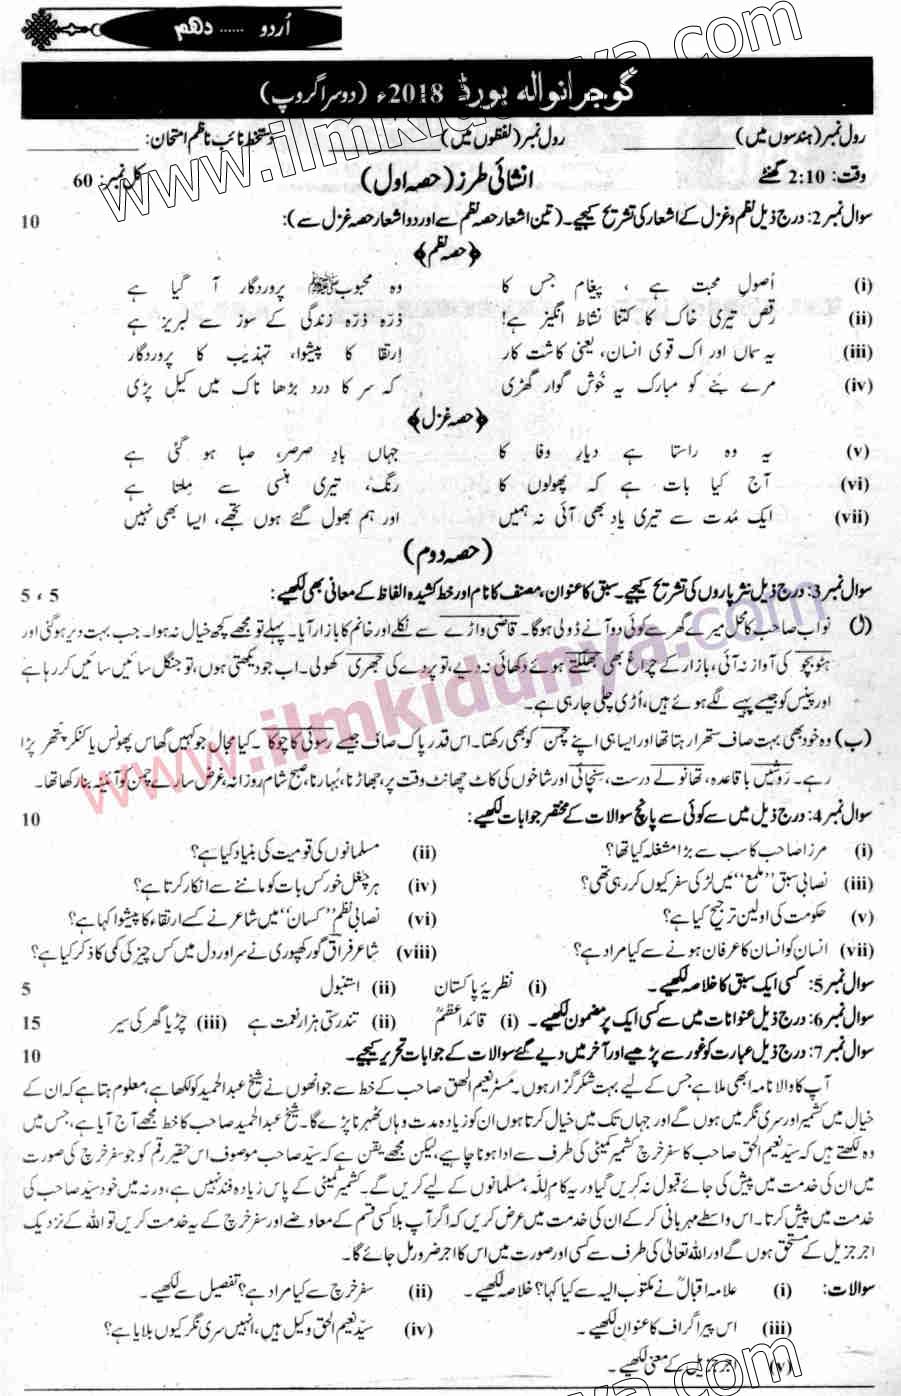 اُردو ...... دهم
گوجرانوالہ بورڈ 2018ء (دوسرا گروپ)
رول نمبر (ہندسوں میں) ____________ رول نمبر (لفظوں میں) ____________ دستخط نائب ناظم امتحان: ____________
وقت: 2:10 گھنٹے انشائی طرز (حصہ اول) کل نمبر: 60
سوال نمبر 2: درج ذیل نظم و غزل کے اشعار کی تشریح کیجیے۔ (تین اشعار حصہ نظم سے اور دو اشعار حصہ غزل سے): 10
﴿حصہ نظم﴾
(i) اُصولِ محبت ہے ، پیغام جس کا وہ محبوبﷺ پروردگار آ گیا ہے
(ii) رقص تیری خاک کا کتنا نشاط انگیز ہے! ذرّہ ذرّہ زندگی کے سوز سے لبریز ہے
(iii) یہ سماں اور اک قوی انسان، یعنی کاشت کار اِرتقا کا پیشوا، تہذیب کا پروردگار
(iv) مرے بنے کو مبارک یہ خُوش گوار گھڑی کہ سر کا درد بڑھا ناک میں کیل پڑی
﴿حصہ غزل﴾
(v) یہ وہ راستا ہے دیارِ وفا کا جہاں بادِ صرصر، صبا ہو گئی ہے
(vi) آج کیا بات ہے کہ پھولوں کا رنگ، تیری ہنسی سے مِلتا ہے
(vii) ایک مُدت سے تیری یاد بھی آئی نہ ہمیں اور ہم بھول گئے ہوں تجھے، ایسا بھی نہیں
(حصہ دوم)
سوال نمبر 3: درج ذیل نثر پاروں کی تشریح کیجیے۔ سبق کا عنوان، مصنف کا نام اور خط کشیدہ الفاظ کے معانی بھی لکھیے: 5 ، 5
(ل) نواب صاحب کا محل میرے گھر سے کوئی دو آنے ڈولی ہوگا۔ قاضی واڑے سے نکلے اور خانم کا بازار آیا۔ پہلے تو مجھے کچھ خیال نہ ہوا۔ جب بہت دیر ہوگئی اور
ہٹو بچو کی آواز نہ آئی، بازار کے چراغ بھی جھلکتے ہوئے دکھائی نہ دیے، تو پردے کی جھری کھولی۔ اب جو دیکھتی ہوں، تو جنگل سائیں سائیں کر رہا ہے
اور پنس کو جیسے پہیے لگے ہوئے ہیں، اُڑی چلی جا رہی ہے۔
(ب) وہ خود بھی بہت صاف ستھرا رہتا تھا اور ایسا ہی اپنے چمن کو بھی رکھتا۔ اس قدر پاک صاف جیسے رسوئی کا چوکا۔ کیا مجال جو کہیں گھاس پھونس یا کنکر پتھر پڑا
رہے۔ روشیں باقاعدہ، تھانولے درست، سنچائی اور شاخوں کی کاٹ چھانٹ وقت پر، جھاڑنا، بُہارنا، صبح شام روزانہ، غرض سارے چمن کو آئینہ بنا رکھا تھا۔
سوال نمبر 4: درج ذیل میں سے کوئی سے پانچ سوالات کے مختصر جوابات لکھیے: 10
(i) مرزا صاحب کا سب سے بڑا مشغلہ کیا تھا؟ (ii) مسلمانوں کی قومیت کی بنیاد کیا ہے؟
(iii) نصابی سبق ”ملمع“ میں لڑکی سفر کیوں کر رہی تھی؟ (iv) ہر چغل خور کس بات کو ماننے سے انکار کرتا ہے؟
(v) حکومت کی اولین ترجیح کیا ہے؟ (vi) نصابی نظم ”کسان“ میں شاعر نے کسے ارتقاء کا پیشوا کہا ہے؟
(vii) انسان کو انسان کا عرفان ہونے سے کیا مراد ہے؟ (viii) شاعر فراق گورکھپوری نے سر اور دل میں کس چیز کی کمی کا ذکر کیا ہے؟
سوال نمبر 5: کسی ایک سبق کا خلاصہ لکھیے۔ (i) نظریۂ پاکستان (ii) استنبول 5
سوال نمبر 6: درج ذیل عنوانات میں سے کسی ایک پر مضمون لکھیے۔ (i) قائد اعظمؒ (ii) تندرستی ہزار نعمت ہے (iii) چڑیا گھر کی سیر 15
سوال نمبر 7: درج ذیل عبارت کو غور سے پڑھیے اور آخر میں دیے گئے سوالات کے جوابات تحریر کیجیے۔ 10
آپ کا والا نامہ ابھی ملا ہے جس کے لیے بہت شکر گزار ہوں۔ مسٹر نعیم الحق صاحب کے خط سے جو اُنھوں نے شیخ عبدالحمید کو لکھا ہے، معلوم ہوتا ہے کہ ان کے
خیال میں کشمیر اور سری نگر میں ہوں گے اور جہاں تک میں خیال کرتا ہوں ان کو زیادہ مدت وہاں ٹھہرنا پڑے گا۔ شیخ عبدالحمید صاحب کا خط مجھے آج آیا ہے، جس میں
وہ لکھتے ہیں کہ سیّد نعیم الحق صاحب کا سفر خرچ کشمیر کمیٹی کی طرف سے ادا ہونا چاہیے، لیکن مجھے یقین ہے کہ سیّد صاحب موصوف اس حقیر رقم کو جو سفر خرچ کی صورت
میں ان کی خدمت میں پیش کی جائے قبول نہ کریں گے اور یہ کام لِلّٰہ، مسلمانوں کے لیے کریں گے۔ کشمیر کمیٹی کے پاس زیادہ فنڈ نہیں ہے، ورنہ میں خود سیّد صاحب کی
خدمت میں پیش کرتا۔ اس واسطے مہربانی کر کے ان کی خدمت میں عرض کریں کہ اگر آپ بلا کسی قسم کے معاوضے اور سفر خرچ کے یہ خدمت کریں تو اللہ کے نزدیک
اجر جزیل کے مستحق ہوں گے اور اللہ تعالیٰ کی طرف سے کسی اور صورت میں اس کا اجر ضرور مل جائے گا۔
سوالات: (i) علامہ اقبالؒ نے مکتوب الیہ سے کیا کہا؟ خلاصہ لکھیے۔ (ii) سفر خرچ سے کیا مراد ہے؟ تفصیل سے لکھیے۔
(iii) اس پیراگراف کا عنوان لکھیے۔ (iv) سیّد نعیم الحق وکیل ہیں، انہیں سری نگر کیوں بلایا ہے؟
(v) اجر جزیل کے معنی لکھیے۔
www.ilmkidunya.com
www.ilmkidunya.com